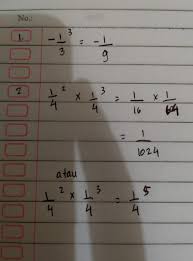 No.:
1. -1/3³ = -1/9
2. 1/4² × 1/4³ = 1/16 × 1/64
= 1/1024
atau
1/4² × 1/4³ = 1/4⁵